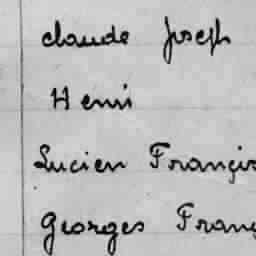 claude Joseph
Henri
Lucien François
Georges Franç